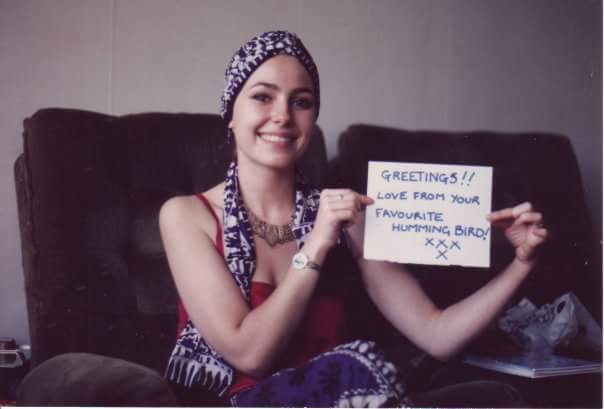 GREETINGS!!
LOVE FROM YOUR
FAVOURITE
HUMMING BIRD!
XXX
X